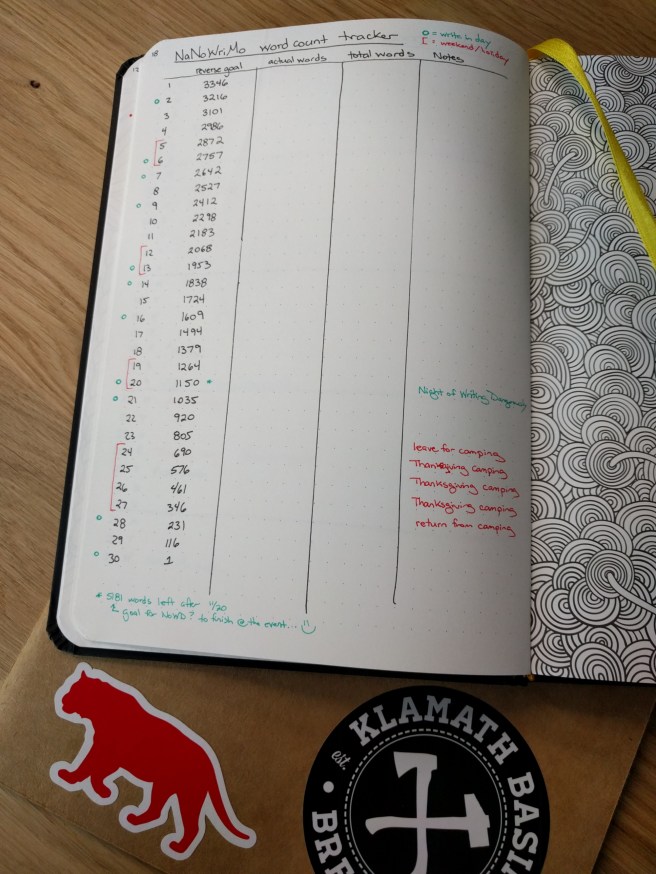 18
NaNoWriMo word count tracker
o = write in day
[ = weekend/holiday
reverse goal actual words total words Notes
1 3346
2 3216
3 3101
4 2986
5 2872
6 2757
7 2642
8 2527
9 2412
10 2298
11 2183
12 2068
13 1953
14 1838
15 1724
16 1609
17 1494
18 1379
19 1264
20 1150 * Night of Writing Dangerously
21 1035
22 920
23 805
24 690 leave for camping
25 576 Thanksgiving camping
26 461 Thanksgiving camping
27 346 Thanksgiving camping
28 231 return from camping
29 116
30 1
* 5181 words left after 11/20
goal for NoWD? to finish @ the event...
KLAMATH BASIN
est.
BRE